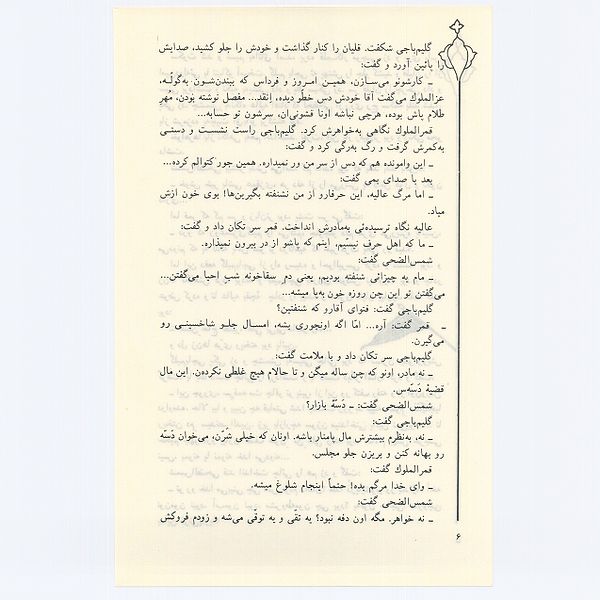 گلیم‌باجی شکفت. قلیان را کنار گذاشت و خودش را جلو کشید، صدایش
را پائین آورد و گفت:
ـ کارشونو می‌سازن، همین امروز و فرداس که ببندن‌شون به‌گولّه.
عزالملوك می‌گفت آقا خودش دس خطّو دیده، اِنقد... مفصل نوشته بودن، مُهرِ
ظلام پاش بوده، هرجی نباشه اونا قشونی‌ان، سرشون تو حسابه...
قمرالملوك نگاهی به‌خواهرش کرد. گلیم‌باجی راست نشست و دستی
به‌کمرش گرفت و رگ به‌رگی کرد و گفت:
ـ این وامونده هم که دس از سر من ور نمیداره. همین جور کتوالم کرده...
بعد با صدای بمی گفت:
ـ اما مرگ عالیه، این حرفارو از من نشنفته بگیرین‌ها! بوی خون ازش
میاد.
عالیه نگاه ترسیده‌ئی به‌مادرش انداخت. قمر سر تکان داد و گفت:
ـ ما که اهل حرف نیسّیم، اینم که پاشو از در بیرون نمیذاره.
شمس‌الضحی گفت:
ـ مام یه چیزائی شنفته بودیم، یعنی دم سقاخونه شب احیا می‌گفتن...
می‌گفتن تو این چن روزه خون به‌پا میشه...
گلیم‌باجی گفت: فتوای آقارو که شنفتین؟
ـ قمر گفت: آره... امّا اگه اونجوری بشه، امسال جلو شاخسینی رو
می‌گیرن.
گلیم‌باجی سر تکان داد و با ملامت گفت:
ـ نه مادر، اونو که چن ساله میگن و تا حالام هیچ غلطی نکرده‌ن. این مال
قضیهٔ دَسّه‌س.
شمس‌الضحی گفت: ـ دَسّهٔ بازار؟
گلیم‌باجی گفت:
ـ نه، به‌نظرم بیشترش مال پامنار باشه. اونان که خیلی شُرّن، می‌خوان دَسّه
رو بهانه کنن و بریزن جلو مجلس.
قمرالملوك گفت:
ـ وای خدا مرگم بده! حتماً اینجام شلوغ میشه.
شمس‌الضحی گفت:
ـ نه خواهر. مگه اون دفه نبود؟ یه تقّی و یه توقّی می‌شه و زودم فروکش
۶